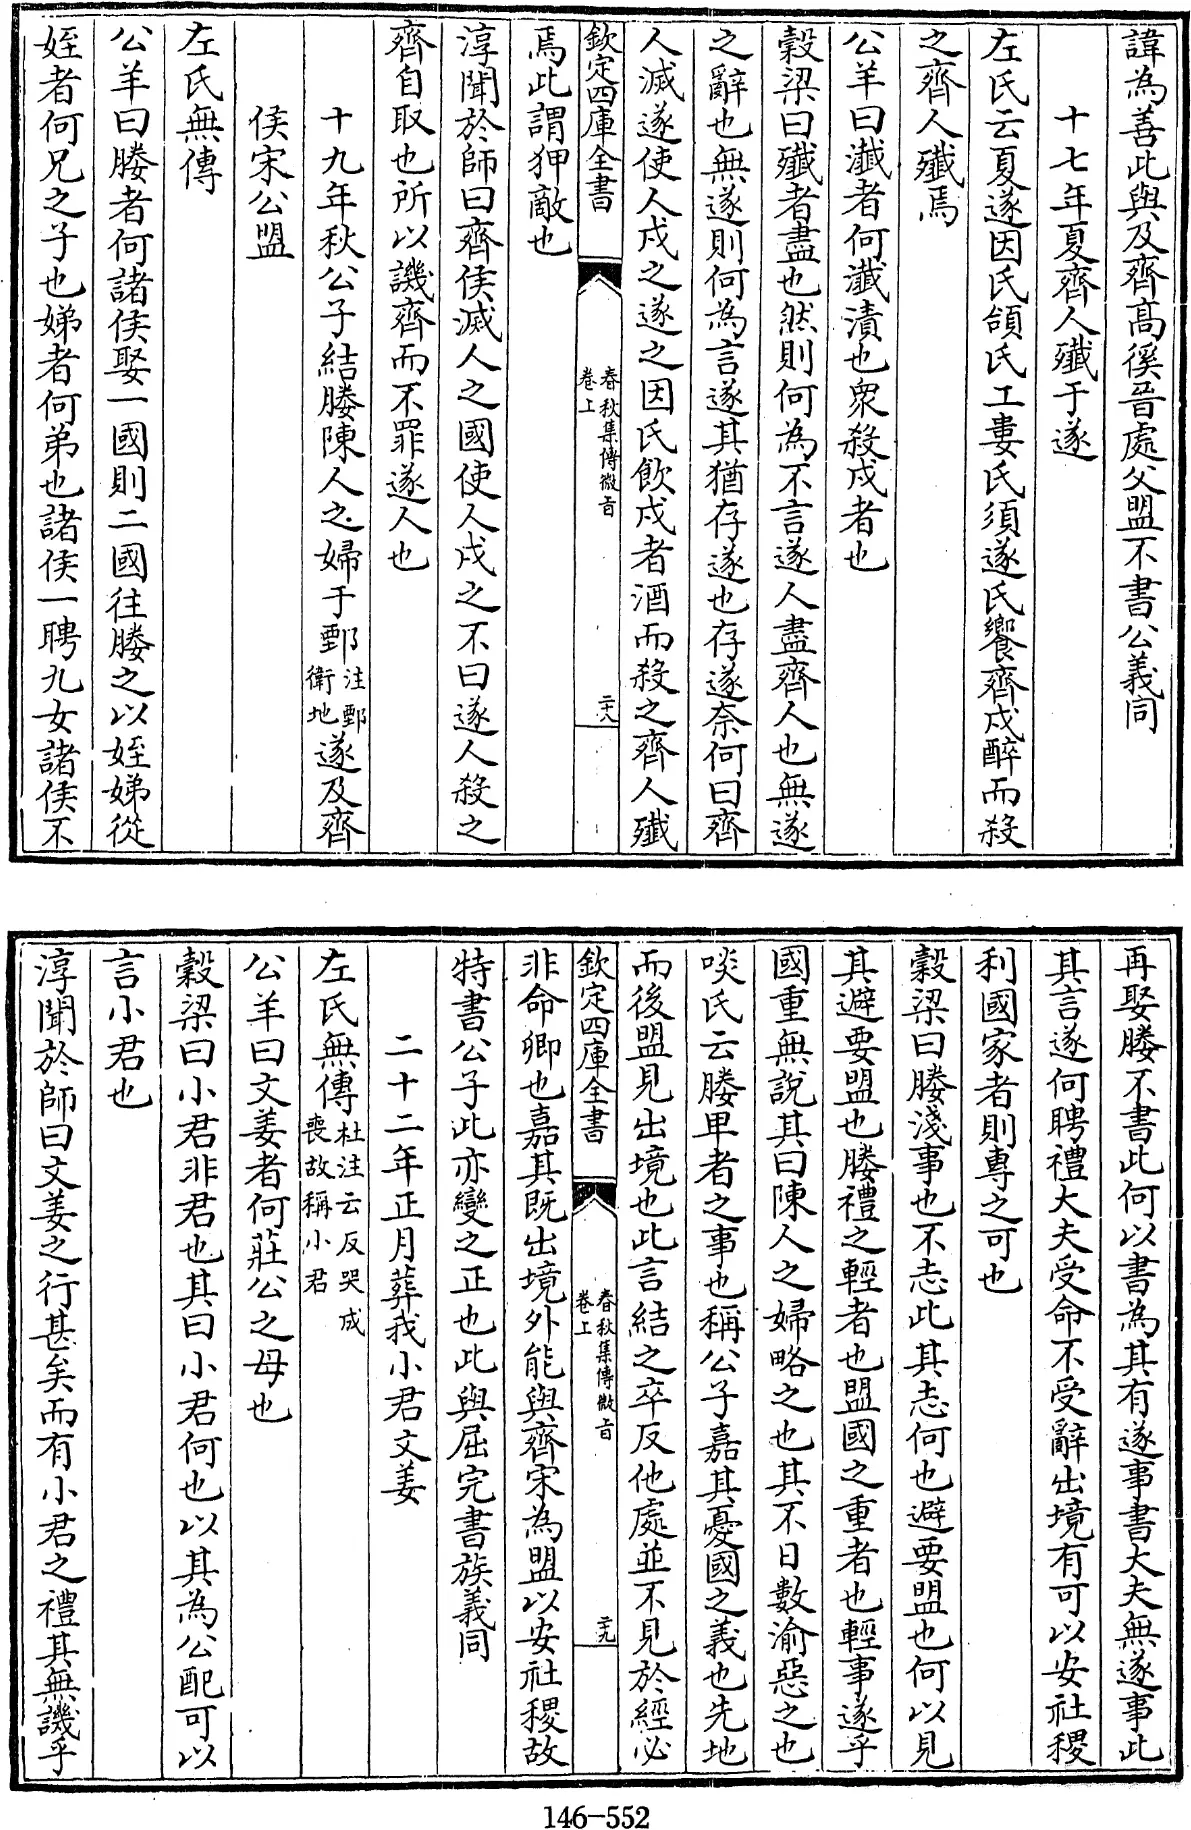 諱為善此與及齊高徯晉處父盟不書公義同
十七年夏齊人殱于遂
左氏云夏遂因氏頜氏工婁氏須遂氏饗齊戍醉而殺
之齊人殱焉
公羊曰瀸者何瀸漬也衆殺戍者也
穀梁曰殱者盡也然則何為不言遂人盡齊人也無遂
之辭也無遂則何為言遂其猶存遂也存遂奈何曰齊
人滅遂使人戍之遂之因氏飲戍者酒而殺之齊人殱
欽定四庫全書
春秋集傳微旨
卷上
二十八
焉此謂狎敵也
淳聞於師曰齊侯滅人之國使人戍之不曰遂人殺之
齊自取也所以譏齊而不罪遂人也
十九年秋公子結媵陳人之婦于鄄注鄄衛地遂及齊
侯宋公盟
左氏無傳
公羊曰媵者何諸侯娶一國則二國往媵之以姪娣從
姪者何兄之子也娣者何弟也諸侯一聘九女諸侯不
再娶媵不書此何以書為其有遂事書大夫無遂事此
其言遂何聘禮大夫受命不受辭出境有可以安社稷
利國家者則專之可也
穀梁曰媵淺事也不志此其志何也避要盟也何以見
其避要盟也媵禮之輕者也盟國之重者也輕事遂乎
國重無說其曰陳人之婦略之也其不日數渝惡之也
啖氏云媵卑者之事也稱公子嘉其憂國之義也先地
而後盟見出境也此言結之卒反他處並不見於經必
欽定四庫全書
春秋集傳微旨
卷上
二十九
非命卿也嘉其既出境外能與齊宋為盟以安社稷故
特書公子此亦變之正也此與屈完書族義同
二十二年正月葬我小君文姜
左氏無傳杜注云反哭成喪故稱小君
公羊曰文姜者何莊公之母也
穀梁曰小君非君也其曰小君何也以其為公配可以
言小君也
淳聞於師曰文姜之行甚矣而有小君之禮其無譏乎
146-552